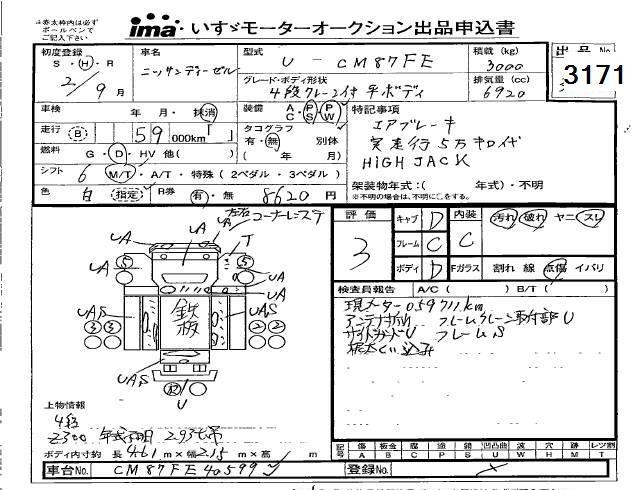 ※赤太枠内は必ず
ボールペンで
ご記入下さい
ima いすゞモーターオークション出品申込書
初度登録 S・H・R 2/9月
車名 ニッサンディーゼル
型式 U - CM87FE
積載(kg) 3000
出品No. 3171
グレード・ボディ形状 4段クレーン付 平ボディ
排気量(cc) 6920
車検 年・月・抹消
装備 A・P・P C S W
特記事項
走行 B 59,000km「 」
タコグラフ 有・無 別体 ( 年 月)
エアブレーキ
実走行5万キロ代
HIGH JACK
燃料 G・D・HV 他( )
シフト 6 M/T・A/T・特殊(2ペダル・3ペダル)
架装物年式:( 年式)・不明
※不明の場合は、不明に○をする。
色 白 (指定) R券 有・無 8620円
左右コーナーステ
評価 3
キャブ D
内装 C
汚れ・破れ・ヤニ・スレ
フレーム C
ボディ D
Fガラス 割れ・線・点傷・イバリ
UA UA UA T
UA UA
UA
UAS 鉄板 UAS
UAS U
検査員報告 A/C( ) B/T( )
現メーター059711km
アンテナ折れ フレームクレーン取付部U
サイドガードU フレームS
上物情報
4段
Z300 年式不明 2.93t吊
ボディ内寸約 長4.61m×幅2.15m×高 / m
記号 傷A 板金B 腐C 塗P 錆S 凹凸曲U 波W 穴H 跡M レツ割T
車台No. CM87FE40599
登録No.